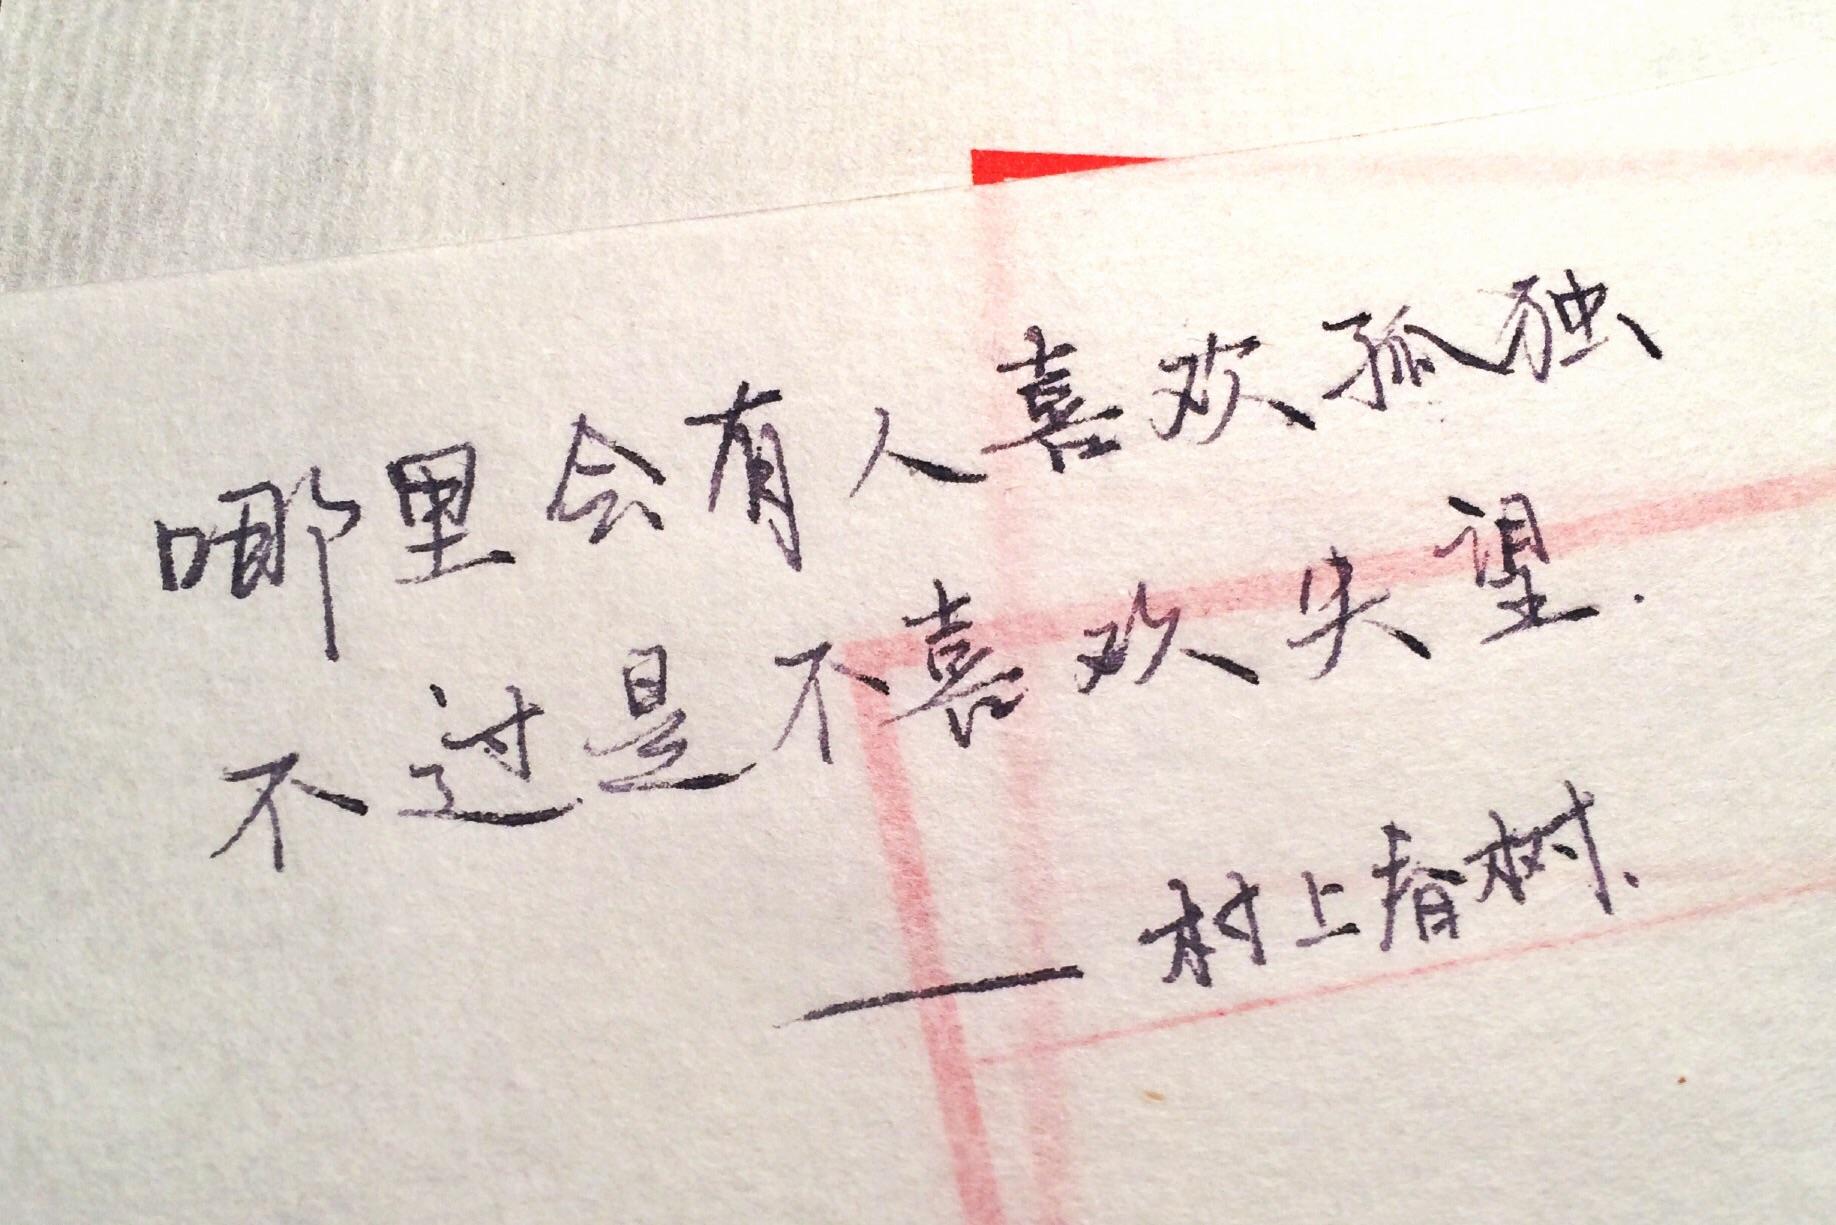 哪里会有人喜欢孤独
不过是不喜欢失望.
——村上春树.